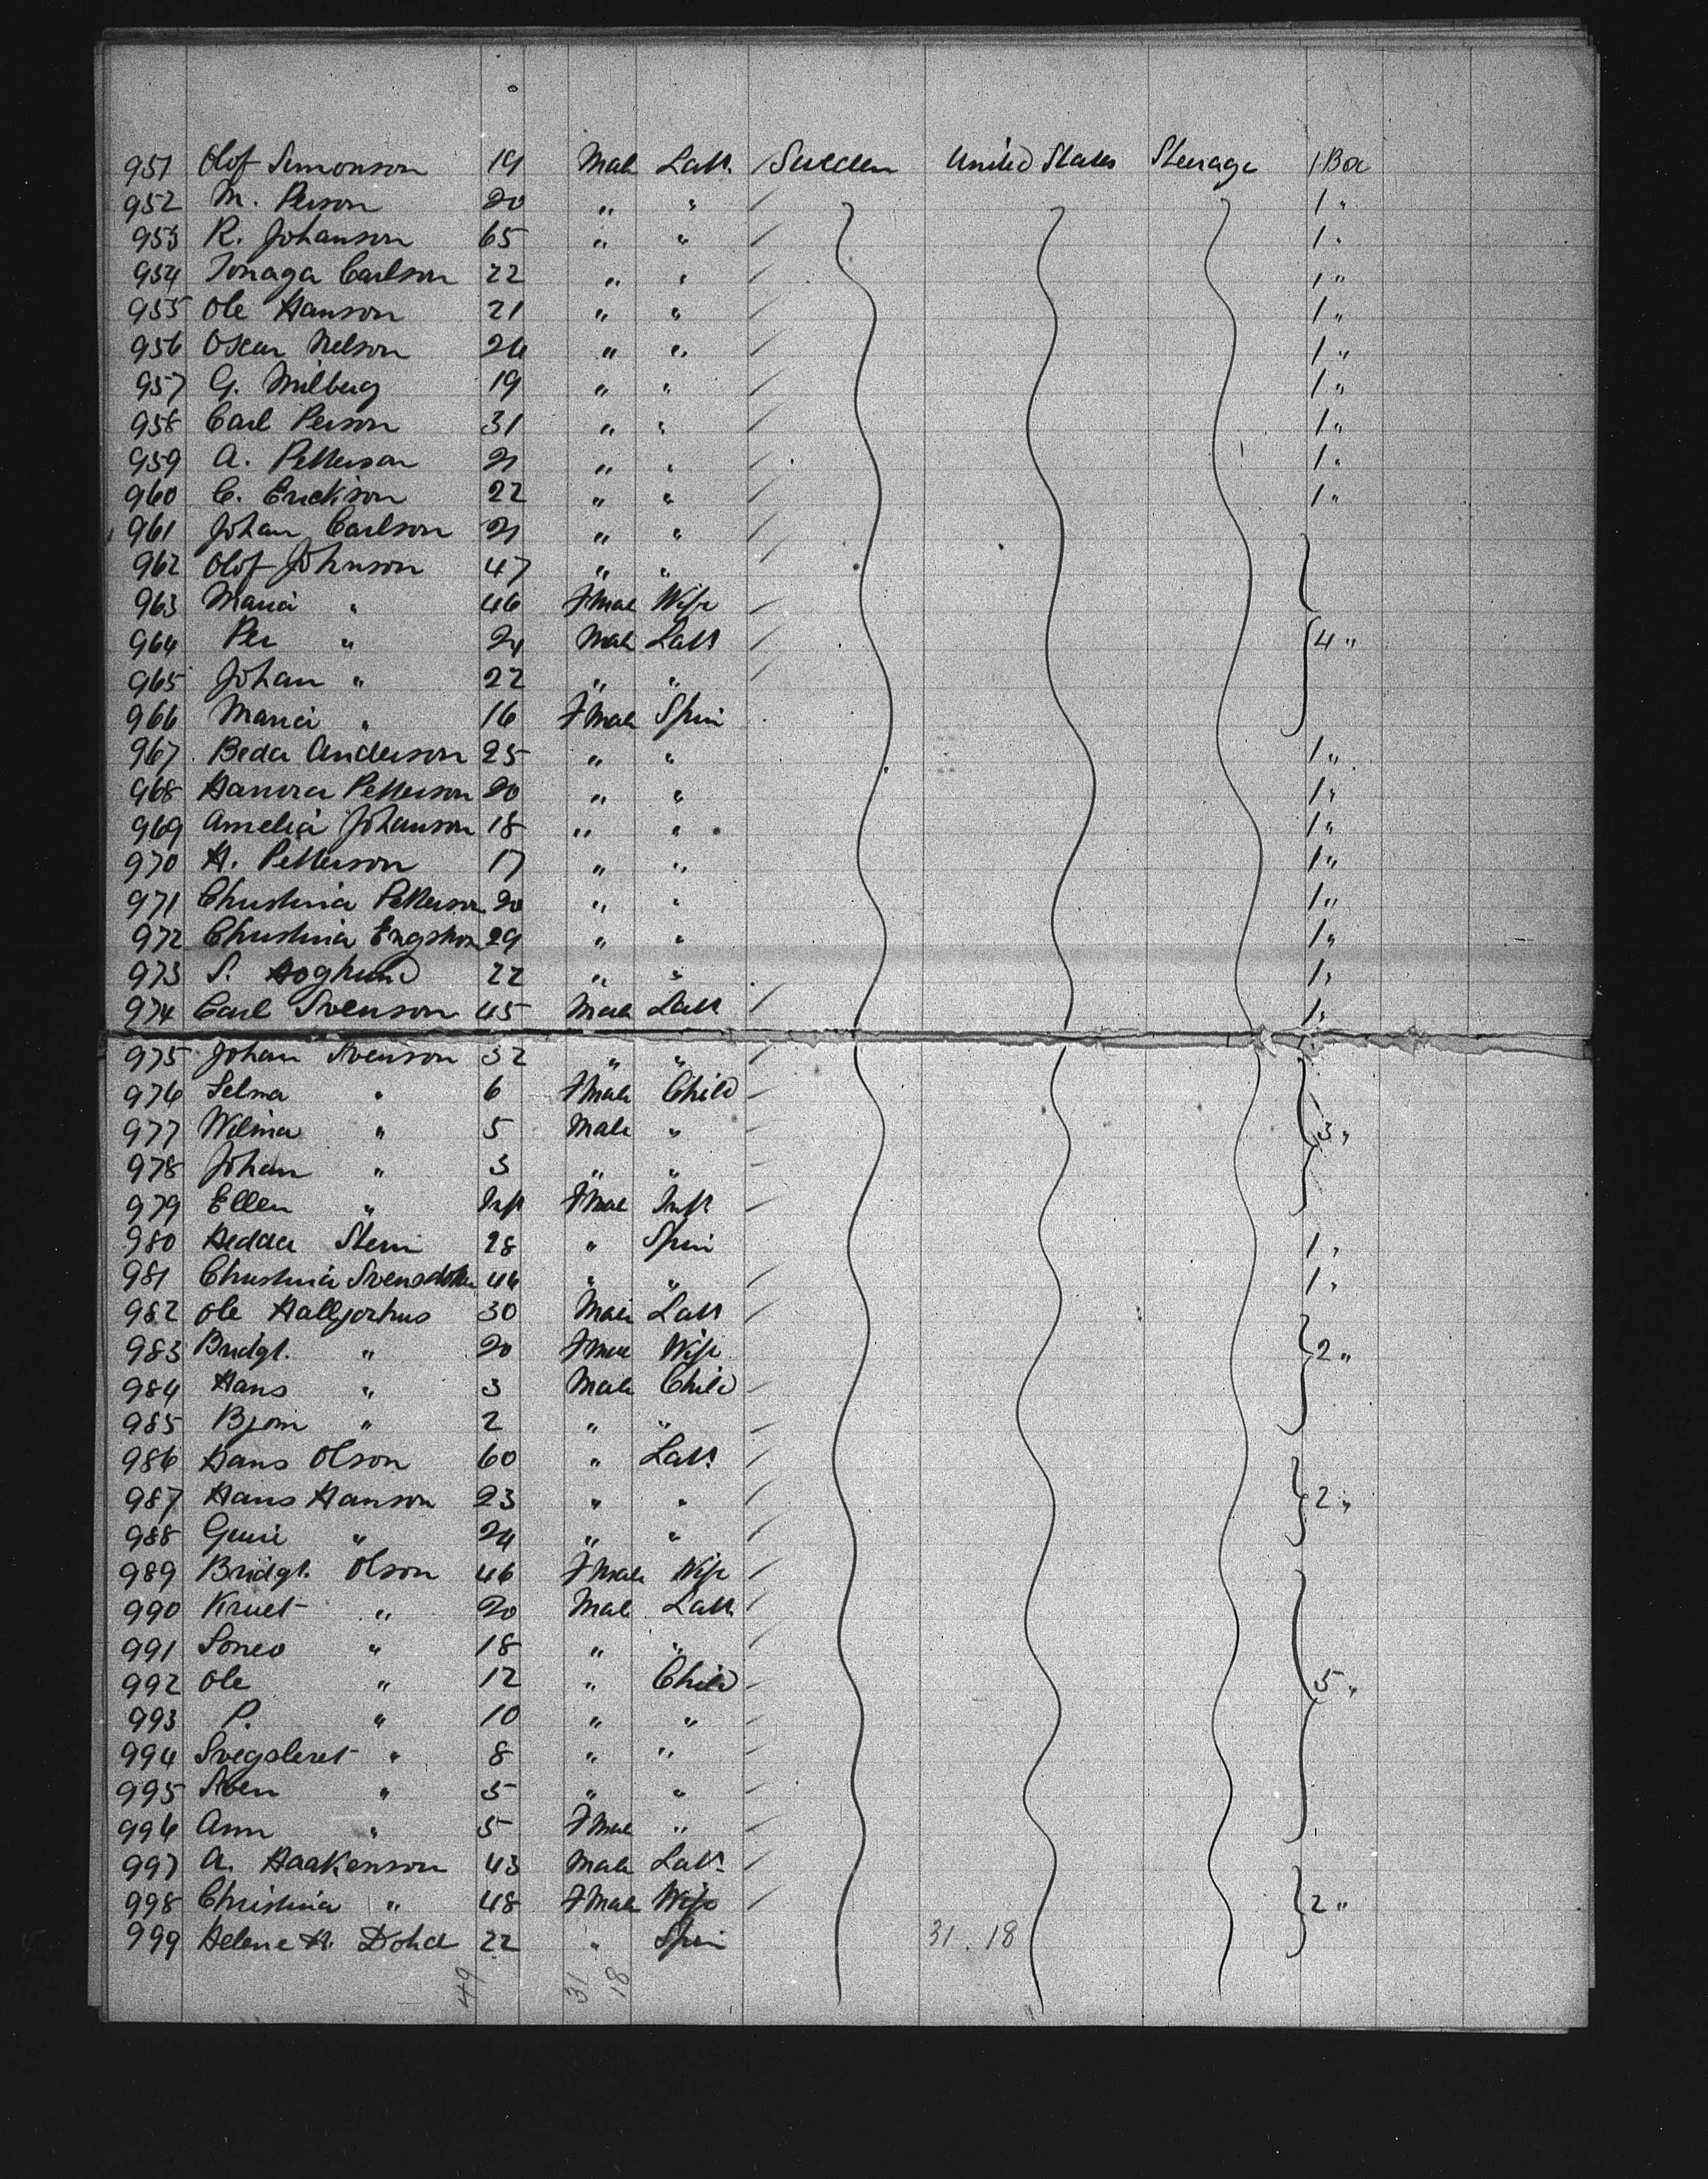 951 Olof Simonson 19 Male Labr. / Sweden United States Steerage 1 Box
952 M. Person 20 " " / 1 "
953 R. Johanson 65 " " / 1 "
954 Carlson 22 " " / 1 "
955 Ole Hanson 21 " " / 1 "
956 Oscar Nelson 26 " " / 1 "
957 G. Milberg 19 " " / 1 "
958 Carl Person 31 " " / 1 "
959 A. Petterson 21 " " / 1 "
960 C. Erickson 22 " " / 1 "
961 Johan Carlson 21 " " /
962 Olof Johnson 47 " " /
963 Maria " 46 Fmale Wife /
964 Per " 24 Male Labr / 4 "
965 Johan " 22 " " /
966 Maria " 16 Fmale Spin
967 Beda Anderson 25 " " 1 "
968 Hanna Petterson 20 " " 1 "
969 Amelia Johanson 18 " " 1 "
970 H. Petterson 17 " " 1 "
971 Christina Petterson 20 " " 1 "
972 Christina Engstrom 29 " " 1 "
973 S. Hoglund 22 " " 1 "
974 Carl Svenson 45 Male Labr / 1 "
975 Johan Svenson 32 " " /
976 Selma " 6 Fmale Child /
977 Wilma " 5 Male " / 3 "
978 Johan " 3 " " /
979 Ellen " Inft Fmale Inft /
980 Hedda Stern 28 " Spin 1 "
981 Christina Svensdotter 46 " " / 1 "
982 Ole Hallgorhus 30 Male Labr /
983 Bridgt. " 20 Fmale Wife 2 "
984 Hans " 3 Male Child /
985 Bjorn " 2 " " /
986 Hans Olson 60 " Labr. /
987 Hans Hanson 23 " " / 2 "
988 " 24 " " /
989 Bridgt. Olson 46 Fmale Wife /
990 Knut " 20 Male Labr. /
991 " 18 " " /
992 Ole " 12 " Child / 5 "
993 P. " 10 " " /
994 " 8 " " /
995 Sven " 5 " " /
996 Ann " 5 Fmale " /
997 A. Haakenson 43 Male Labr. /
998 Christina " 48 Fmale Wife / 2 "
999 Helene H. Dohd 22 " Spin 31. 18
49 31 18